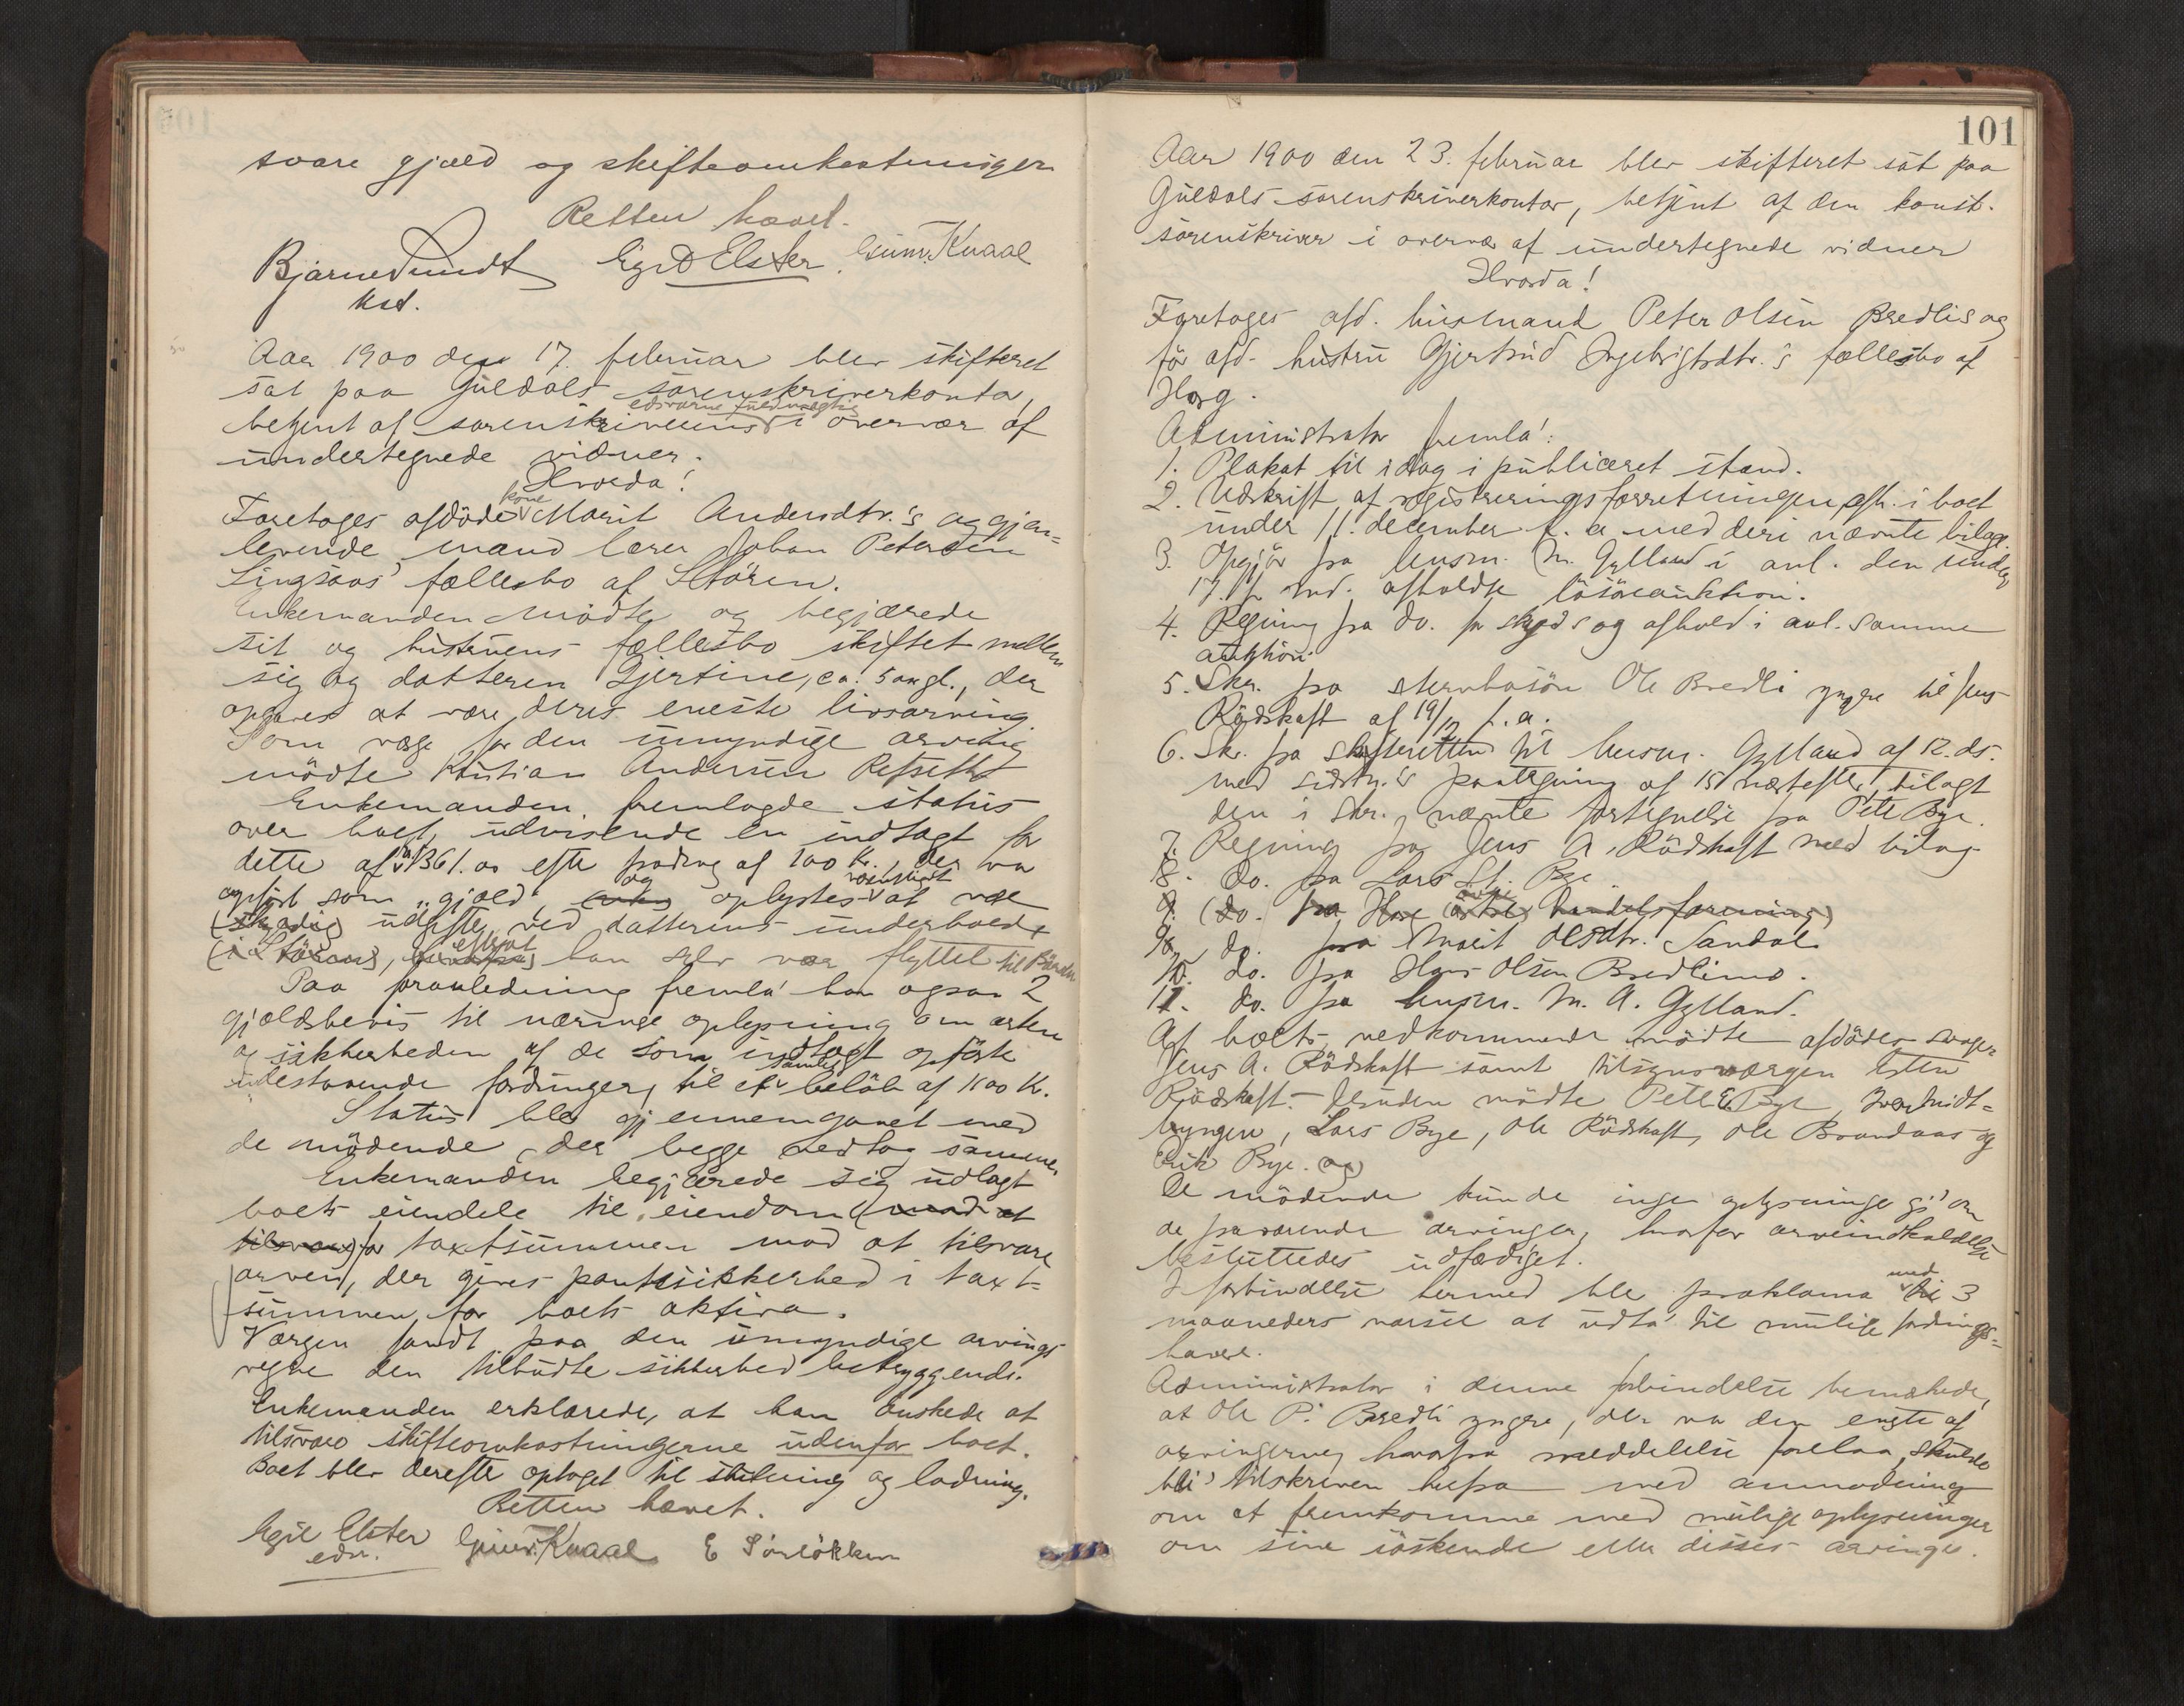 svare gjæld og skifteomkostninger
Retten hævet.
Bjarne Sundt Egil Elster. Gunv. Knaal
kst.
Aar 1900 den 17. februar blev skifteret
sat paa Guldals sorenskriverkontor,
betjent af sorenskriverens edsvorne fuldmægtig i overvær af
undertegnede vidner.
Hvorda!
Foretoges afdöde kone Marit Andersdtr.'s og gjen-
levende mand lærer Johan Petersen
Singsaas' fællesbo af Stören.
Enkemanden mödte og begjærede
sit og hustruens fællesbo skiftet mellem
sig og datteren Gjertine, ca. 5 aar gl., der
opgaves at være deres eneste livsarving.
Som værge for den umyndige arving
mödte Kristian Andersen Refseth
Enkemanden fremlagde status
over boet, udvisende en indtægt for
dette af 1361.00 efter fradrag af 100 Kr., der var
opfört som "gjæld", og oplystes at være
udgifter ved datterens underhold
(i Stören), efterat han selv var flyttet til
Paa foranledning fremla' han ogsaa 2
gjældsbevis til nærmere oplysning om arten
og sikkerheden af de som indtægt opförte
udestaaende fordringer, til et samlet belöb af 1100 Kr.
Status blev gjennemgaaet med
de mödende, der begge vedtog samme.
Enkemanden begjærede sig udlagt
boets eiendele til eiendom (mod at
tilsvare) for taxtsummen mod at tilsvare
arven, der gives pantesikkerhed i taxt-
summen for boets aktiva.
Værgen fandt paa den umyndige arvings
vegne den tilbudte sikkerhed betryggende.
Enkemanden erklærede, at han önskede at
tilsvare skifteomkostningerne udenfor boet.
Boet blev derefter optaget til slutning og lodning.
Retten hævet.
Egil Elster Gunv. Knaal E Sörlökken
edsv.
101
Aar 1900 den 23. februar blev skifteret sat paa
Guldals sorenskriverkontor, betjent af den konst.
sorenskriver i overvær af undertegnede vidner
Hvorda!
Foretoges afd. husmand Peter Olsen Bredlis og
för afd. hustru Gjertrud Ingebrigtsdtr.'s fællesbo af
Horg.
Administrator fremla':
1. Plakat til idag i publiceret stand.
2. Udskrift af registreringsforretningen afh. i boet
under 11. december f. a. med deri nævnte bilage.
3. Opgjör fra lensm. M. Gylland i anl. den under
17. f. md. afholdte lösöreauktion.
4. Regning fra do. for skyds og afhold i anl. samme
auktion
5. Skr. fra stervbosön Ole Bredli yngre til Jens
Rödskaft af 19/12 f. a.
6. Skr. fra skifteretten til lensm. Gylland af 12. ds.
med sidstn.'s paategning af 15 næstefter, bilagt
den i skr. nævnte fortegnelse fra Peter Bye.
7. Regning fra Jens A. Rödskaft med bilag
8. do. fra Lars St. Bye
9. (do. fra Horg handelsforening)
9. do. fra Marit Olsdtr. Sandal
10. do. fra Hans Olsen Bredlimo.
11. do. fra lensm. M. A. Gylland.
Af boets vedkommende mödte afdödes svoger
Jens A. Rödskaft samt tilsynsværgen Esten
Rödskaft. Desuden mödte Peter E. Bye,
Lars Bye, Ole Rödskaft, Ole Brandaas og
Erik Bye. (og)
De mödende kunde ingen oplysninger gi' om
de fraværende arvinger, hvorfor arveindkaldelse
besluttedes udfærdiget.
I forbindelse hermed blev proklama med 3
maaneders varsel at udta' til mulige fordrings-
havere.
Administrator i denne forbindelse bemærkede,
at Ole P. Bredli yngre, der var den eneste af
arvingerne, hvorfra meddelelse forelaa, skulde
bli' tilskreven herfra med anmodning
om at fremkomme med mulige oplysninger
om sine söskende eller disses arvinger.